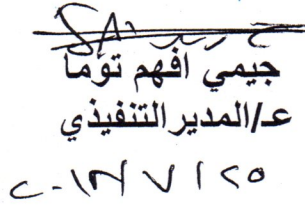 جيمي افهم توما
عـ/المدير التنفيذي
٢٠١٣/٧/٢٥